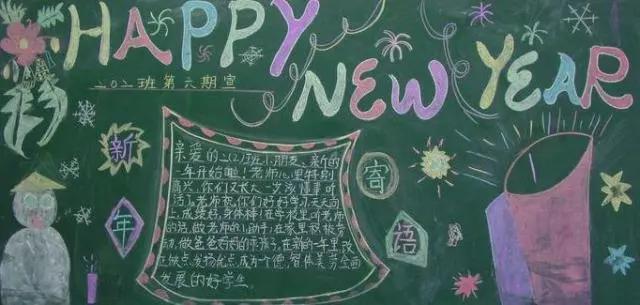 HAPPY
NEW YEAR
202班第六期宣
新
年
寄
语
亲爱的202班小朋友，新的
一年开始啦！老师心里特别
高兴，你们又长大一岁，该懂事听
话了。老师祝你们好好学习，天天向
上，成绩好，身体棒！在学校里听老师
的话，做老师的小助手；在家里积极劳
动，做爸爸妈妈的乖孩子，在新的一年里改
正缺点，发扬优点，成为一个德、智、体、美、劳全面
发展的好学生。